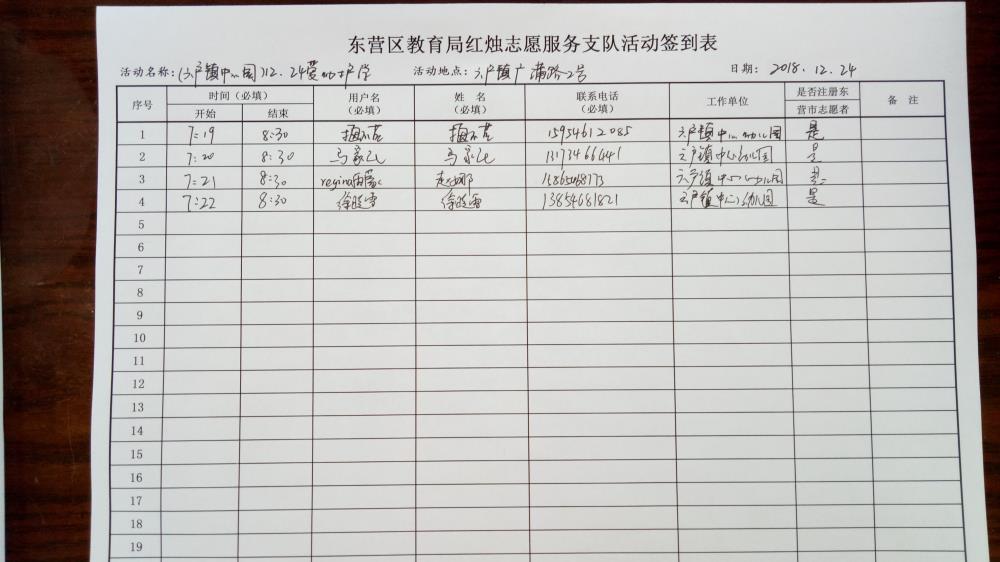 东营区教育局红烛志愿服务支队活动签到表
活动名称：(六户镇中心园)12.24 护学 活动地点：六户镇广蒲路2号 日期：2018.12.24
序号 时间（必填） 用户名（必填） 姓名（必填） 联系电话（必填） 工作单位 是否注册东营市志愿者 备注
开始 结束
1 7:19 8:30 15954612085 六户镇中心幼儿园 是
2 7:20 8:30 13173466441 六户镇中心幼儿园 是
3 7:21 8:30 regina 六户镇中心幼儿园 是
4 7:22 8:30 徐晓雪 徐晓雪 13854681821 六户镇中心幼儿园 是
5
6
7
8
9
10
11
12
13
14
15
16
17
18
19